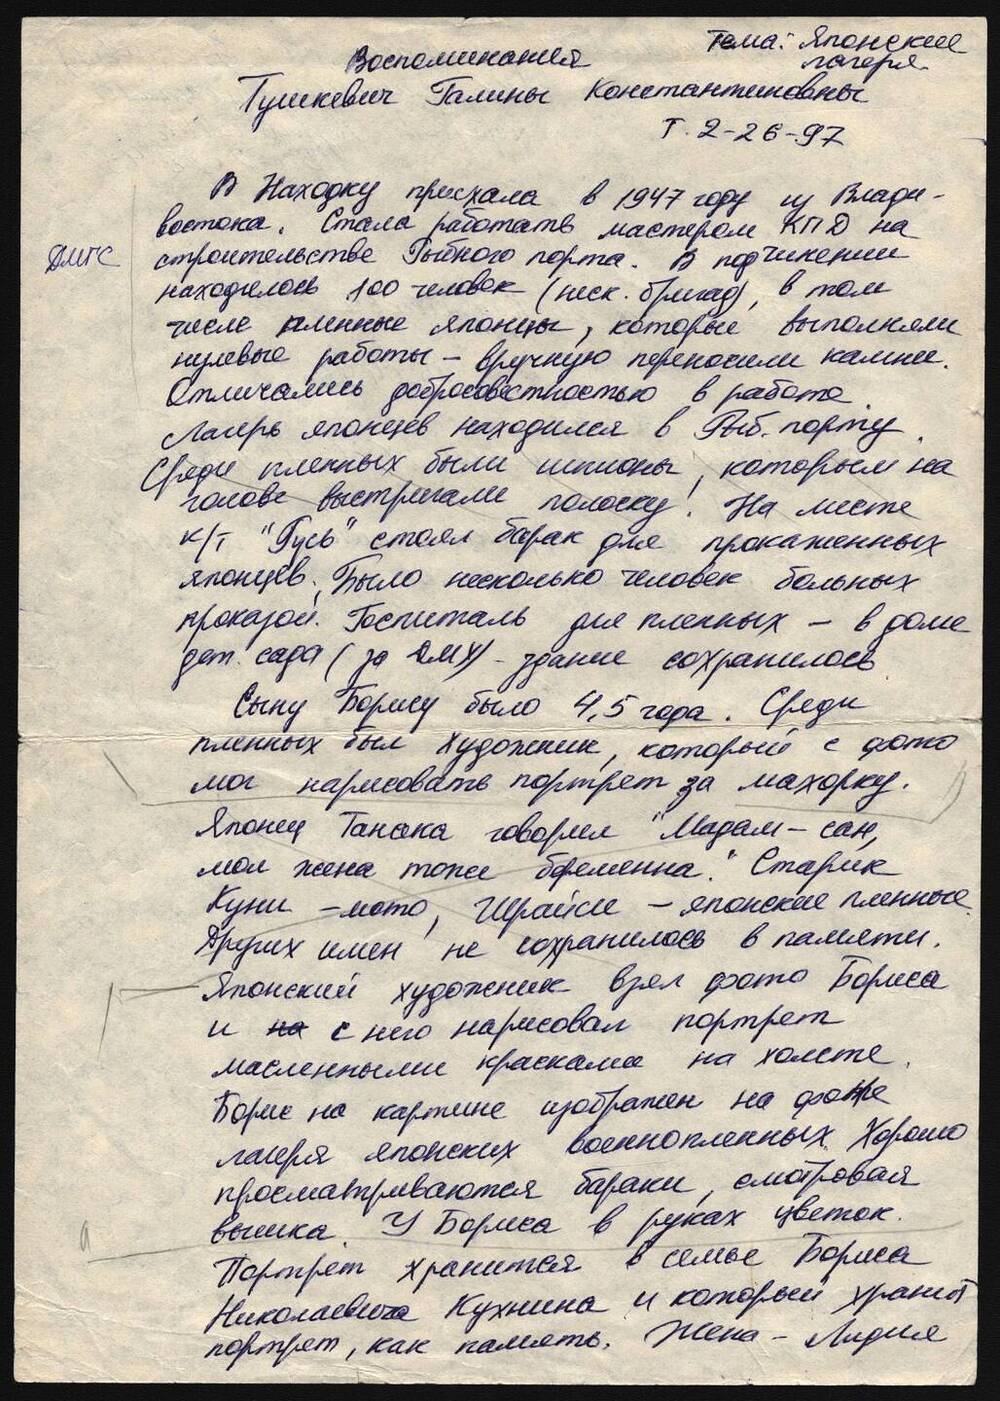 Тема: Японские
лагеря.
Воспоминания
Тушкевич Галины Константиновны
т. 2-26-97
В Находку приехала в 1947 году из Влади-
востока. Стала работать мастером КПД на
строительстве Рыбного порта. В подчинении
находилось 100 человек (неск. бригад), в том
числе пленные японцы, которые выполняли
нулевые работы – вручную переносили камни.
Отличались добросовестностью в работе.
Лагерь японцев находился в Рыб. порту.
Среди пленных были шпионы, которым на
голове выстригали полоску! На месте
к/т "Русь" стоял барак для прокаженных
японцев. Было несколько человек больных
проказой. Госпиталь для пленных – в доме
дет. сада (за ДМХ) – здание сохранилось
Сыну Борису было 4,5 года. Среди
пленных был художник, который с фото
мог нарисовать портрет за махорку.
Японец Танака говорил "Мадам – сан,
моя жена тоже беременна". Старик
Куни – мото, Ширайси – японские пленные.
Других имен не сохранилось в памяти.
Японский художник взял фото Бориса
и на с него нарисовал портрет
масленными красками на холсте.
Борис на картине изображен на фоне
лагеря японских военнопленных. Хорошо
просматриваются бараки, смотровая
вышка. У Бориса в руках цветок.
Портрет хранится в семье Бориса
Николаевича Кухнина и который хранит
портрет, как память. Жена – Лидия